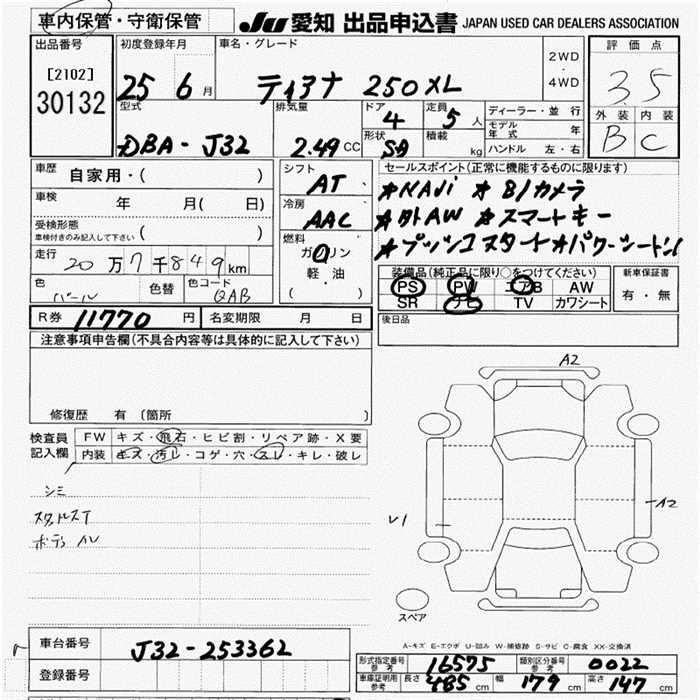 車内保管・守衛保管
JU 愛知 出品申込書 JAPAN USED CAR DEALERS ASSOCIATION
出品番号
[2102]
30132
初度登録年月
25 6 月
車名・グレード
ティアナ 250XL
2WD
・
4WD
評価点
3.5
外装 内装
B C
型式
DBA-J32
排気量
2.49 CC
ドア
4
形状
SD
定員
5 人
積載
kg
ディーラー・並行
モデル年式 年
ハンドル 左・右
車歴
自家用・( )
車検
年 月( 日)
受検形態
車検付きのみ記入して下さい ( )
走行
20万7千849km
色
パール
色替
色コード
QAB
シフト
AT
冷房
AAC
燃料
ガソリン
軽・油
( )
セールスポイント(正常に機能するものに限ります)
★NAVi ★Bカメラ
★外AW ★スマートキー
★プッシュスタート★パワーシート
装備品(純正品に限り○をつけてください)
PS PW エアB AW
SR ナビ TV カワシート
新車保証書
有・無
R券 11770 円 名変期限 月 日
後日品
注意事項申告欄(不具合内容等は具体的に記入して下さい)
修復歴 有 (箇所
検査員
記入欄
FW キズ・飛石・ヒビ割・リペア跡・X要
内装 キズ・汚レ・コゲ・穴・スレ・キレ・破レ
シミ
A2
A2
U1
スペア
A-キズ E-エクボ U-凹み W-補修跡 S-サビ C-腐食 XX-交換済
車台番号 J32-253362
登録番号
形式指定番号
参考
16575
類別区分番号
参考
0022
車庫証明用
参考
長さ 485 cm 幅 179 cm 高さ 147 cm